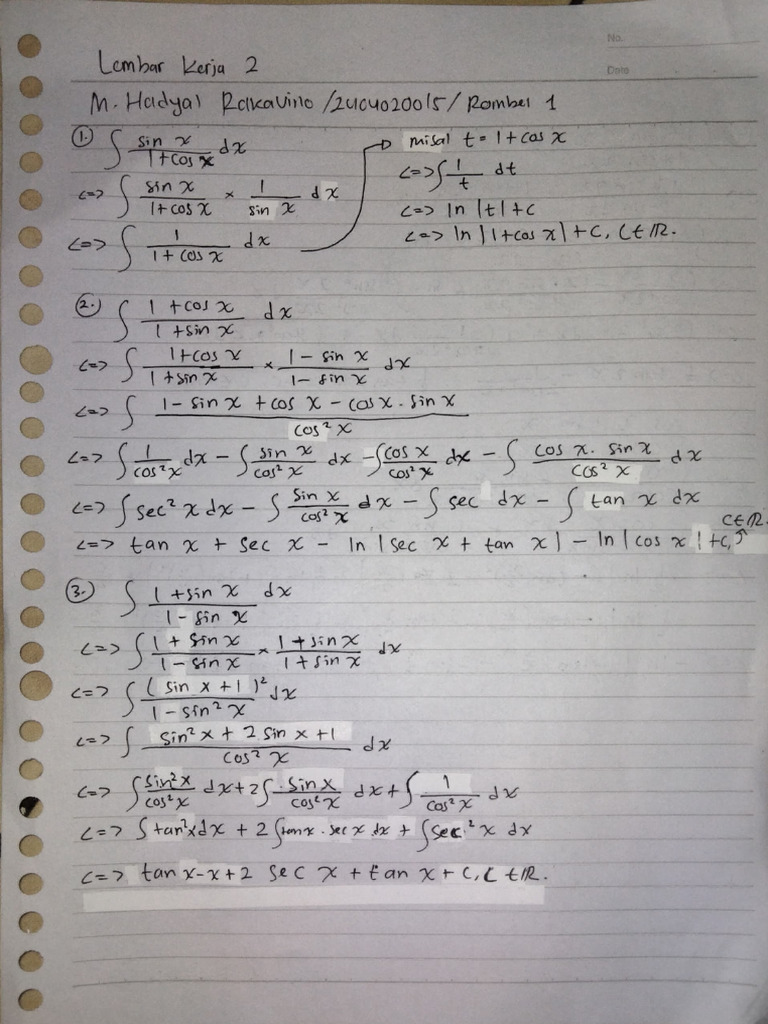 No.
Date
Lembar Kerja 2
M. Hadyal Rakavino /2404020015/ Rombel 1
1. ∫ sin x / 1+cos x dx
<=> ∫ sin x / 1+cos x × 1 / sin x dx
<=> ∫ 1 / 1+cos x dx
misal t = 1+cos x
<=> ∫ 1/t dt
<=> ln |t| + c
<=> ln |1+cos x| + C, C ∈ ℝ.
2. ∫ 1+cos x / 1+sin x dx
<=> ∫ 1+cos x / 1+sin x × 1-sin x / 1-sin x dx
<=> ∫ 1-sin x + cos x - cos x . sin x / cos² x
<=> ∫ 1/cos² x dx - ∫ sin x / cos² x dx - ∫ cos x / cos² x dx - ∫ cos x . sin x / cos² x dx
<=> ∫ sec² x dx - ∫ sin x / cos² x dx - ∫ sec dx - ∫ tan x dx
<=> tan x + sec x - ln |sec x + tan x| - ln |cos x| + C, C ∈ ℝ.
3. ∫ 1+sin x / 1-sin x dx
<=> ∫ 1+sin x / 1-sin x × 1+sin x / 1+sin x dx
<=> ∫ (sin x + 1)² / 1-sin² x dx
<=> ∫ sin² x + 2 sin x + 1 / cos² x dx
<=> ∫ sin² x / cos² x dx + 2 ∫ sin x / cos² x dx + ∫ 1 / cos² x dx
<=> ∫ tan² x dx + 2 ∫ tan x . sec x dx + ∫ sec² x dx
<=> tan x - x + 2 sec x + tan x + C, C ∈ ℝ.